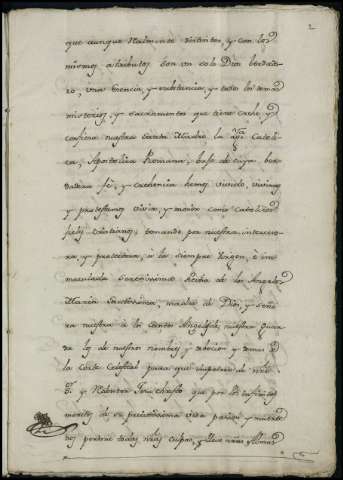 2
que aunque Realmente distintas, y con los
mismos atributos son un solo Dios berdade
ro, una Esencia, y substancia, y todos los demas
misterios, y sacramentos que tiene crehe, y
confiesa nuestra Santa Madre la Yga Catoli
ca, Apostolica Romana, bajo de cuya ber
dadera fé, y crehencia hemos vivido, vivimos
y protestamos vivir, y morir como catolicos
fieles cristianos; tomando por nuestra interceso
ra, y protectora, a la siempre Virgen, é in
maculada Serenissima Reina de los Angeles
Maria Santissima, madre de Dios, y seño
ra nuestra a los Santos Angeles, nuestro Guar
da los de nuestros nombres, y debocion y demas de
la Corte Celestial para que impetren de nro
Sr y Redentor Jesu christo que por los infinitos
meritos de su preciosissima vida pasion y muerte
nos perdone todas nras culpas, y lleve nras Almas